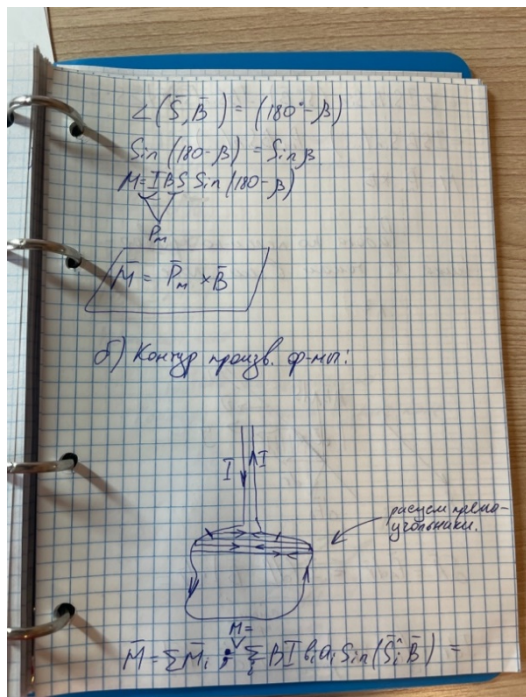 ∠(S̄, B̄) = (180° - β)
Sin (180 - β) = Sin β
M = I B S Sin (180 - β)
Pm
M̄ = P̄m × B̄
б) Контур произв. ф-мы:
I I
рисуем прямо-
угольники.
M =
M̄ = Σ M̄i ; Σi B I bi ai Sin (S̄i ^ B̄) =